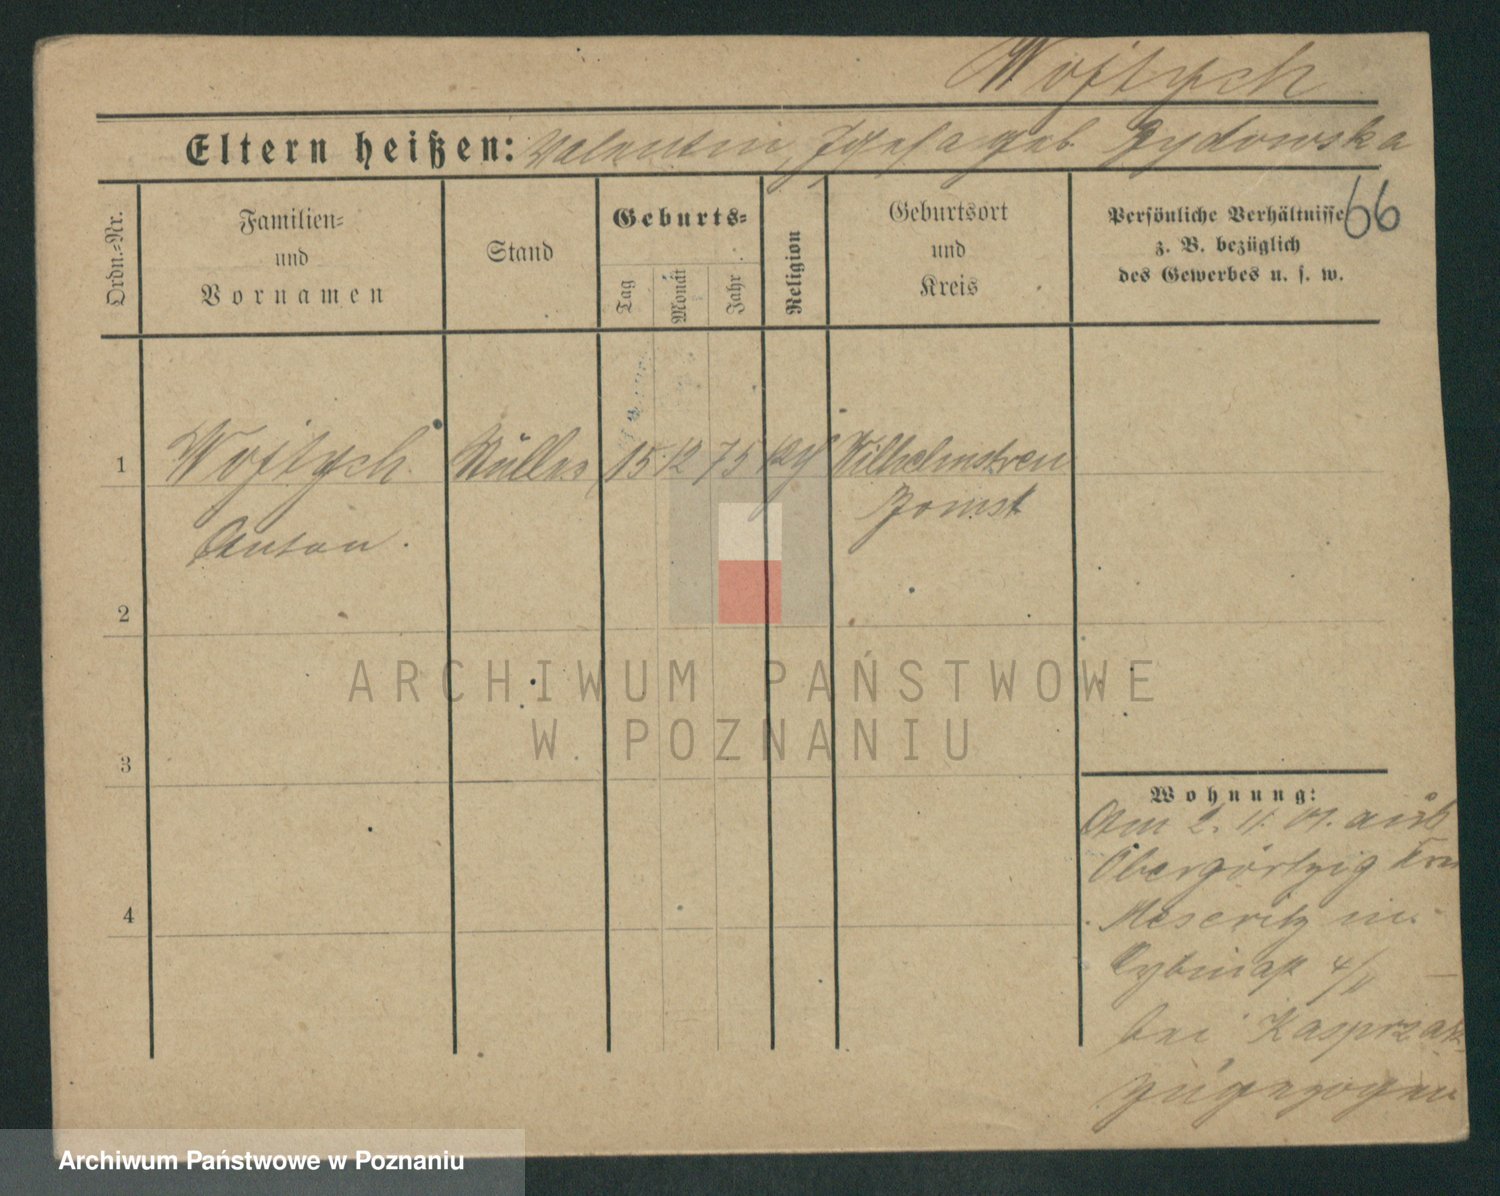 Wojtych
Eltern heißen: Valentin, Josefa geb. Zydowska
66
Ordn.-Nr.
Familien-
und
Vornamen
Stand
Geburts-
Tag
Monat
Jahr
Religion
Geburtsort
und
Kreis
Persönliche Verhältnisse
z. B. bezüglich
des Gewerbes u. s. w.
1 Wojtych Müller 15 12 75 Wilhelmstreu
Anton. Bomst
2
3
4
Wohnung:
Am 2. 11. 01. aus
Obergörtzig Krs
Meseritz in
4/II
bei Kasprzak
zugezogen
ARCHIWUM PAŃSTWOWE
W POZNANIU
Archiwum Państwowe w Poznaniu